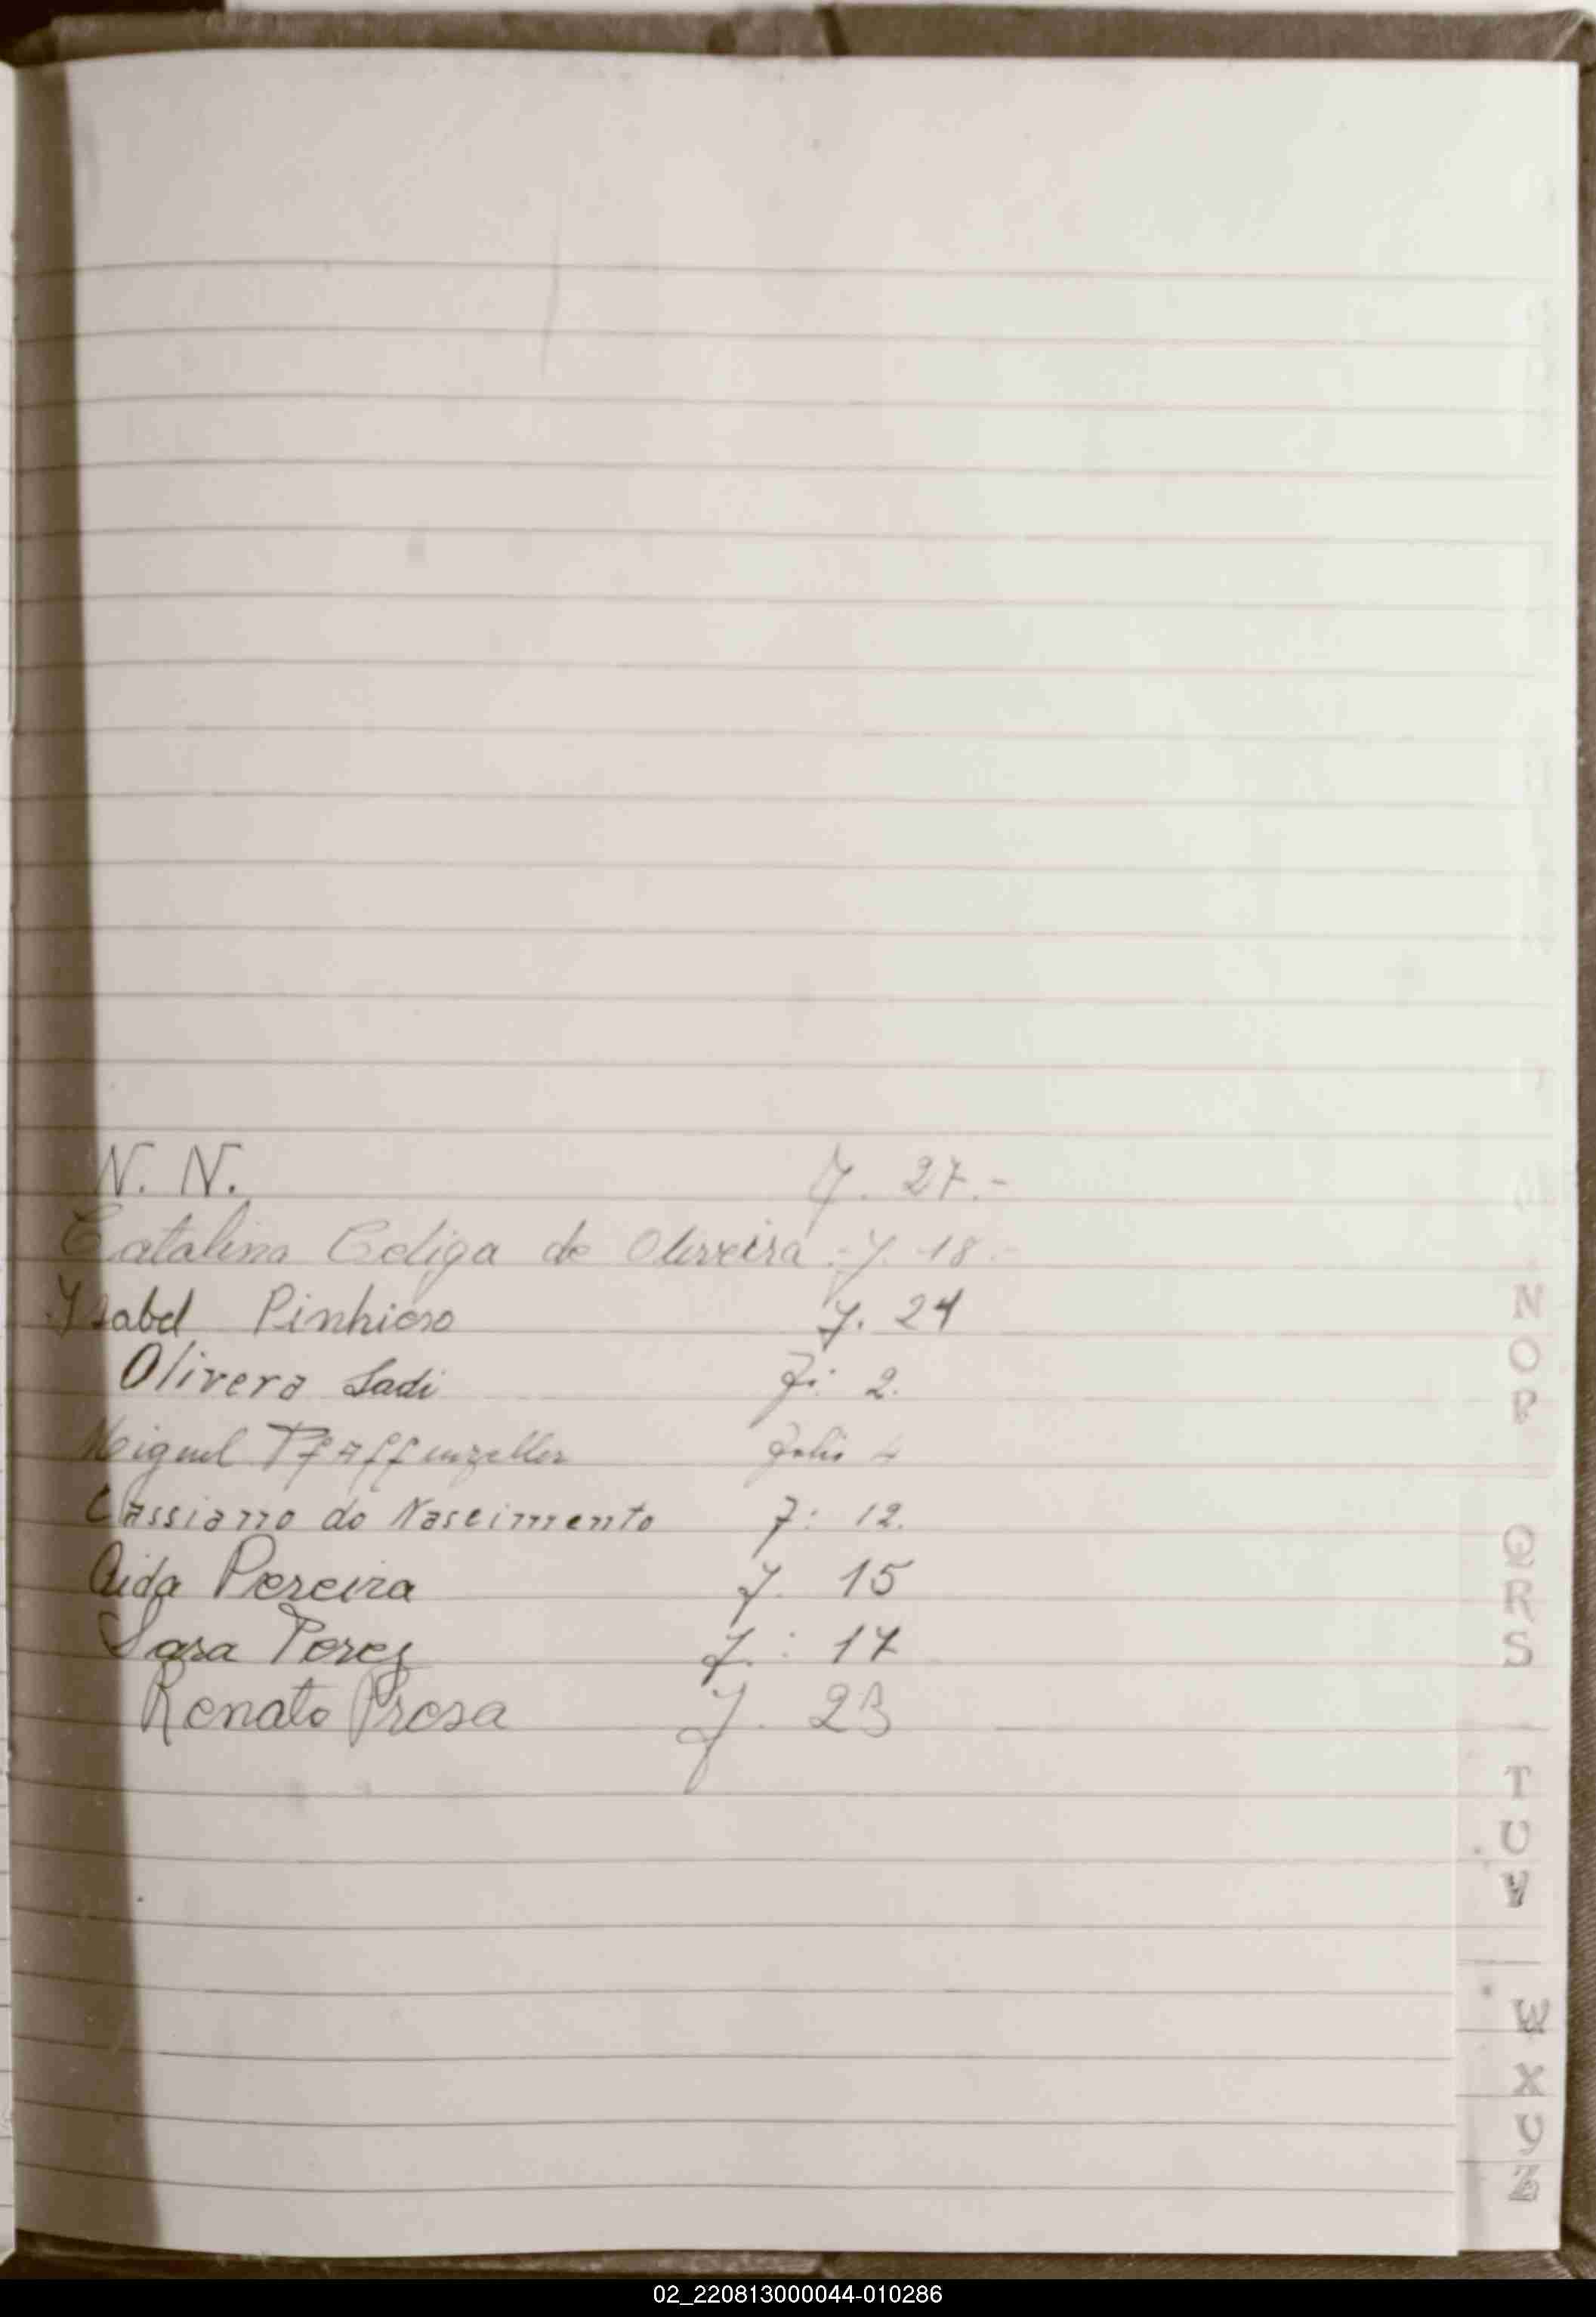 N. N. f. 27.-
Catalina Celiga de Oliveira.- f. 18.-
Ysabel Pinhiero f. 24
Olivera Sadi f: 2.
Miguel Pfaffenzeller folio 4
Cassiano do Nascimento f: 12.
Aida Pereira f. 15
Sara Perez f.: 17
Renato Presa f. 23
N
O
P
Q
R
S
T
U
V
W
X
Y
Z
02_220813000044-010286